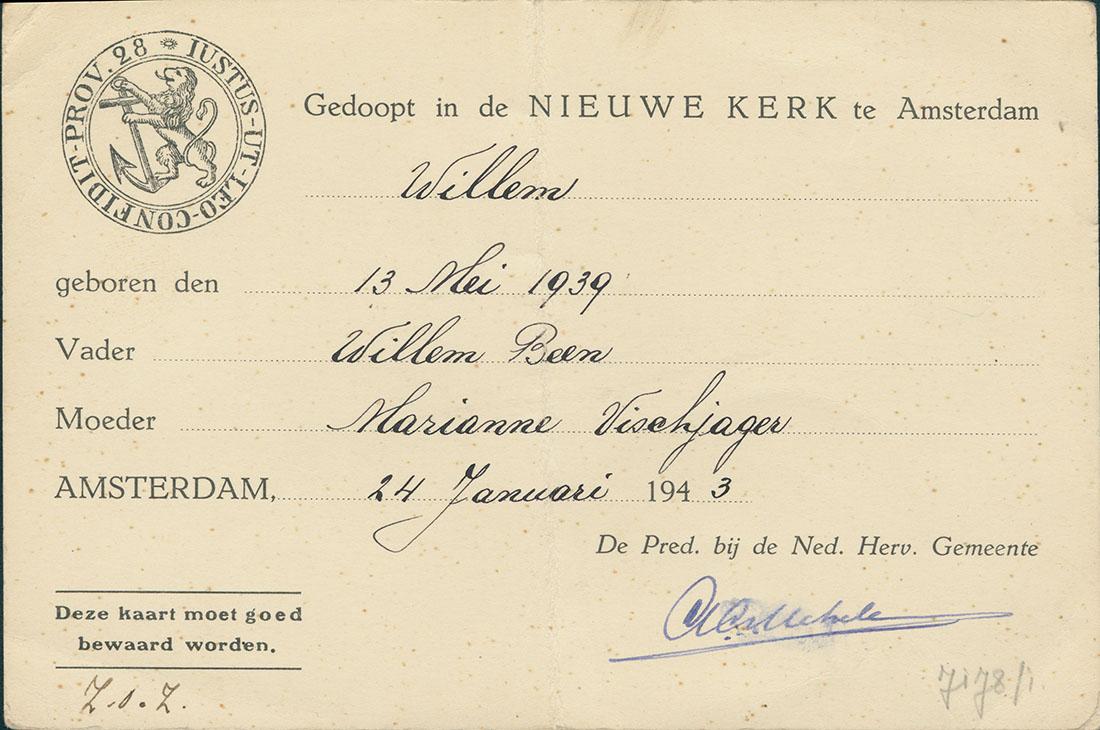 IUSTUS-UT-LEO-CONFIDIT-PROV. 28
Gedoopt in de NIEUWE KERK te Amsterdam
Willem
geboren den 13 Mei 1939
Vader Willem Been
Moeder Marianne Vischjager
AMSTERDAM, 24 Januari 1943
De Pred. bij de Ned. Herv. Gemeente
Deze kaart moet goed
bewaard worden.
Z.o.Z.
7178/1